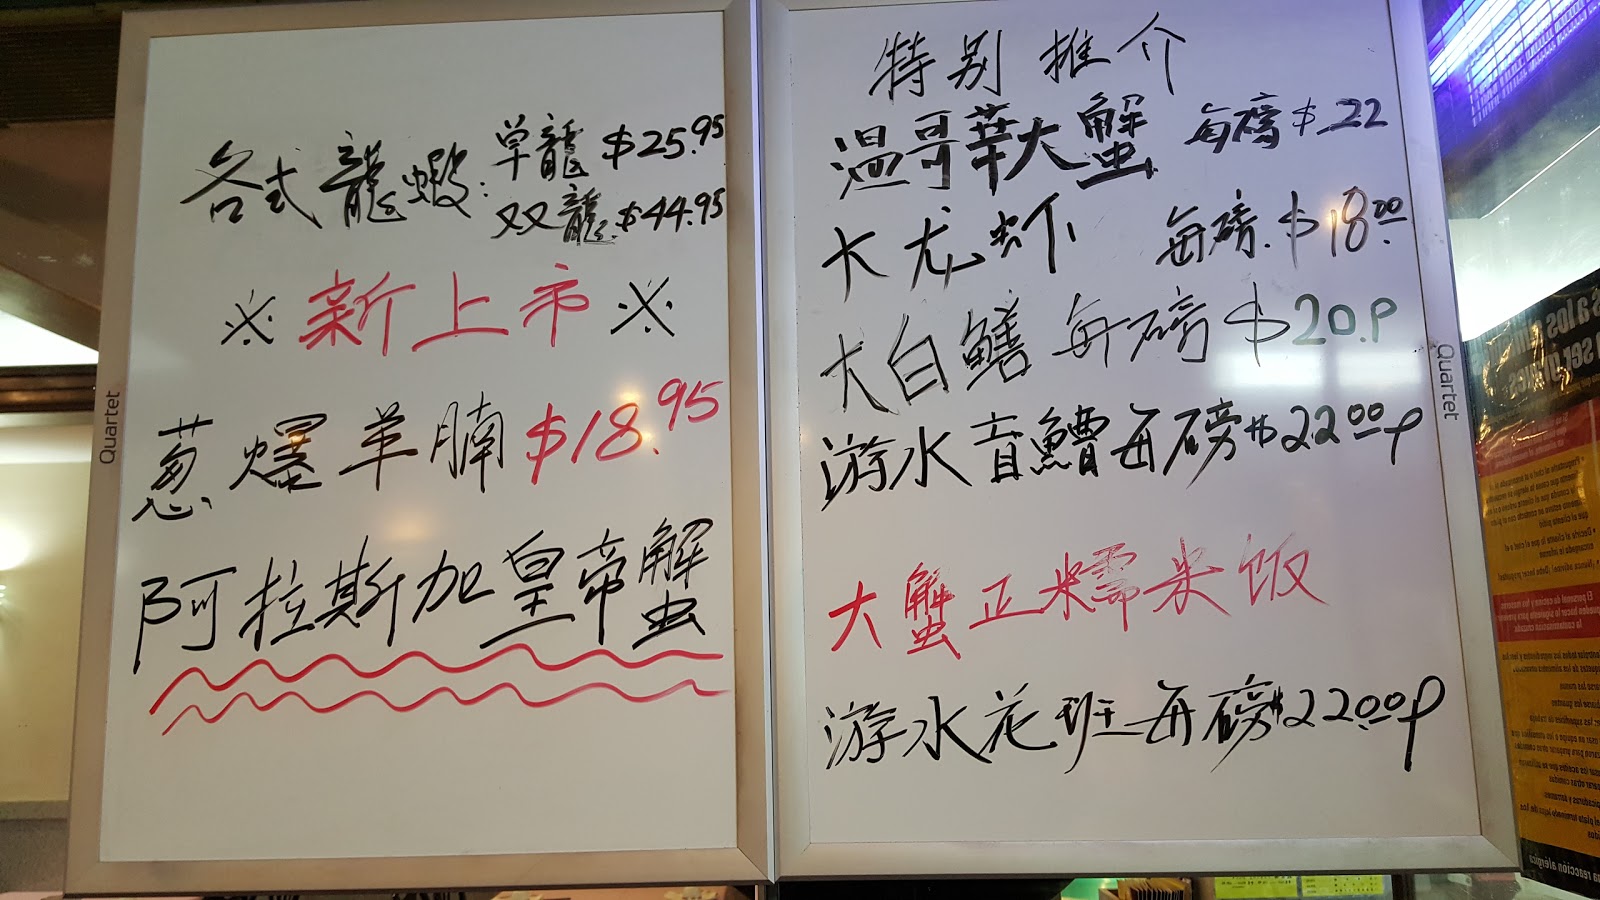 各式龍蝦: 单龍 $25.95
双龍 $44.95
※ 新上市 ※
葱爆羊腩 $18.95
阿拉斯加皇帝蟹
Quartet
特别推介
温哥華大蟹 每磅 $22
大龙虾 每磅 $18.00
大白鱔 每磅 $20.P
游水盲鰽 每磅 $22.00P
大蟹正糯米饭
游水花班 每磅 $22.00P
Quartet